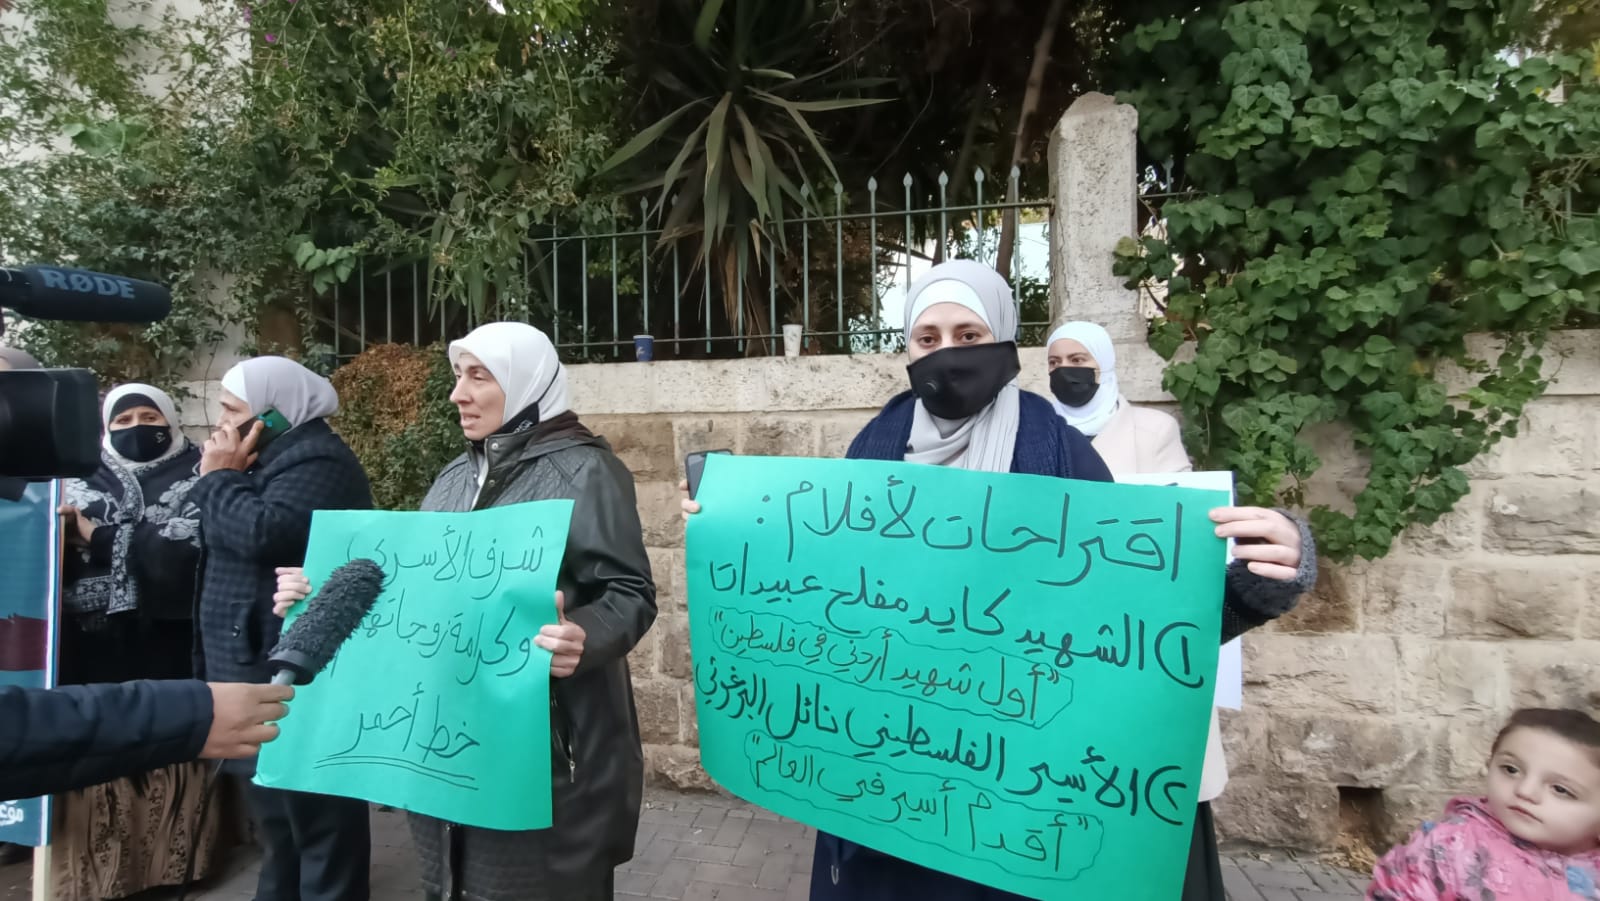 RØDE
شرف الأسرى
وكرامة زوجاتهم
خط أحمر
اقتراحات لأفلام:
١) الشهيد كايد مفلح عبيدات
"أول شهيد أردني في فلسطين"
٢) الأسير الفلسطيني نائل البرغوثي
"أقدم أسير في العالم"